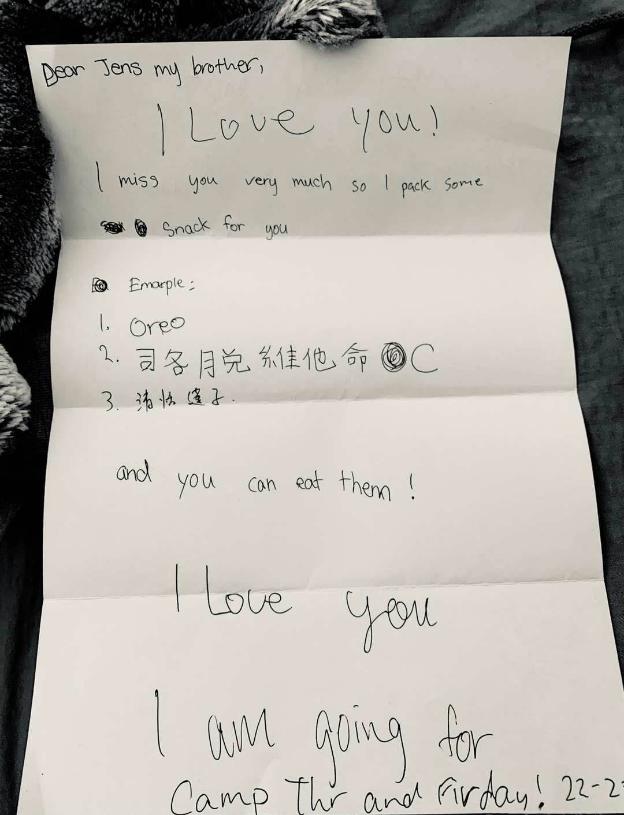 Dear Jens my brother,
I Love you!
I miss you very much so I pack some
Snack for you
Emarple:
1. Oreo
2. 司各月兌維他命 C
3. 子.
and you can eat them!
I Love you
I am going for
Camp Thr and Firday! 22-2